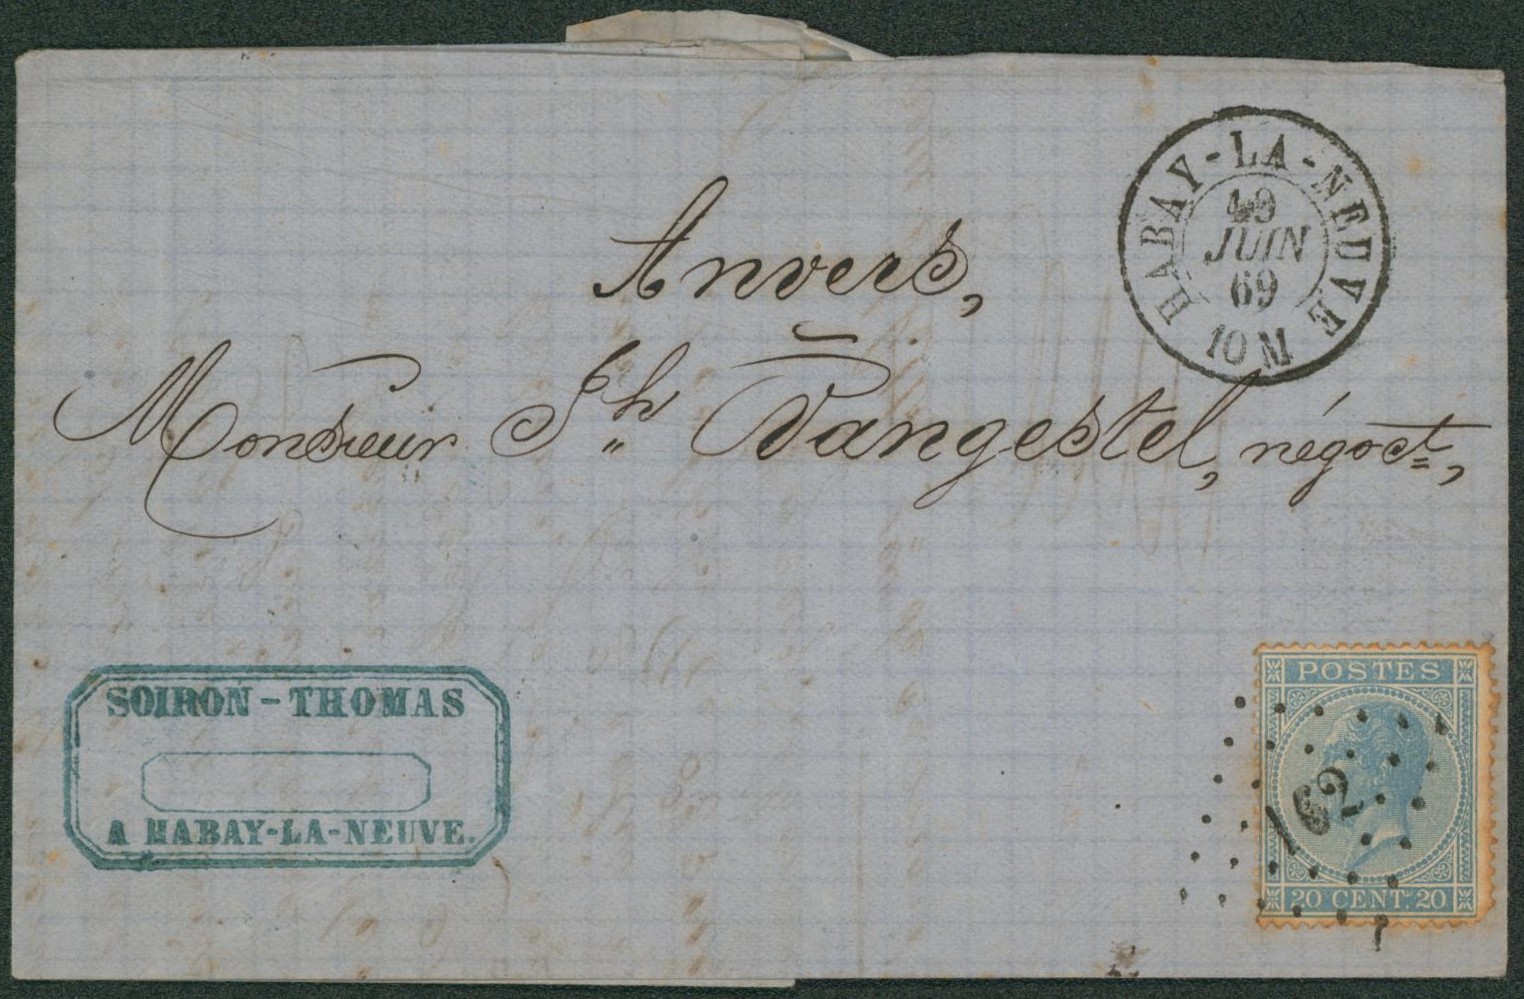 HABAY-LA-NEUVE
19
JUIN
69
10 M
Anvers,
Monsieur Jh Vangestel, négoct,
SOIRON-THOMAS
A HABAY-LA-NEUVE.
POSTES
162
20 CENT. 20